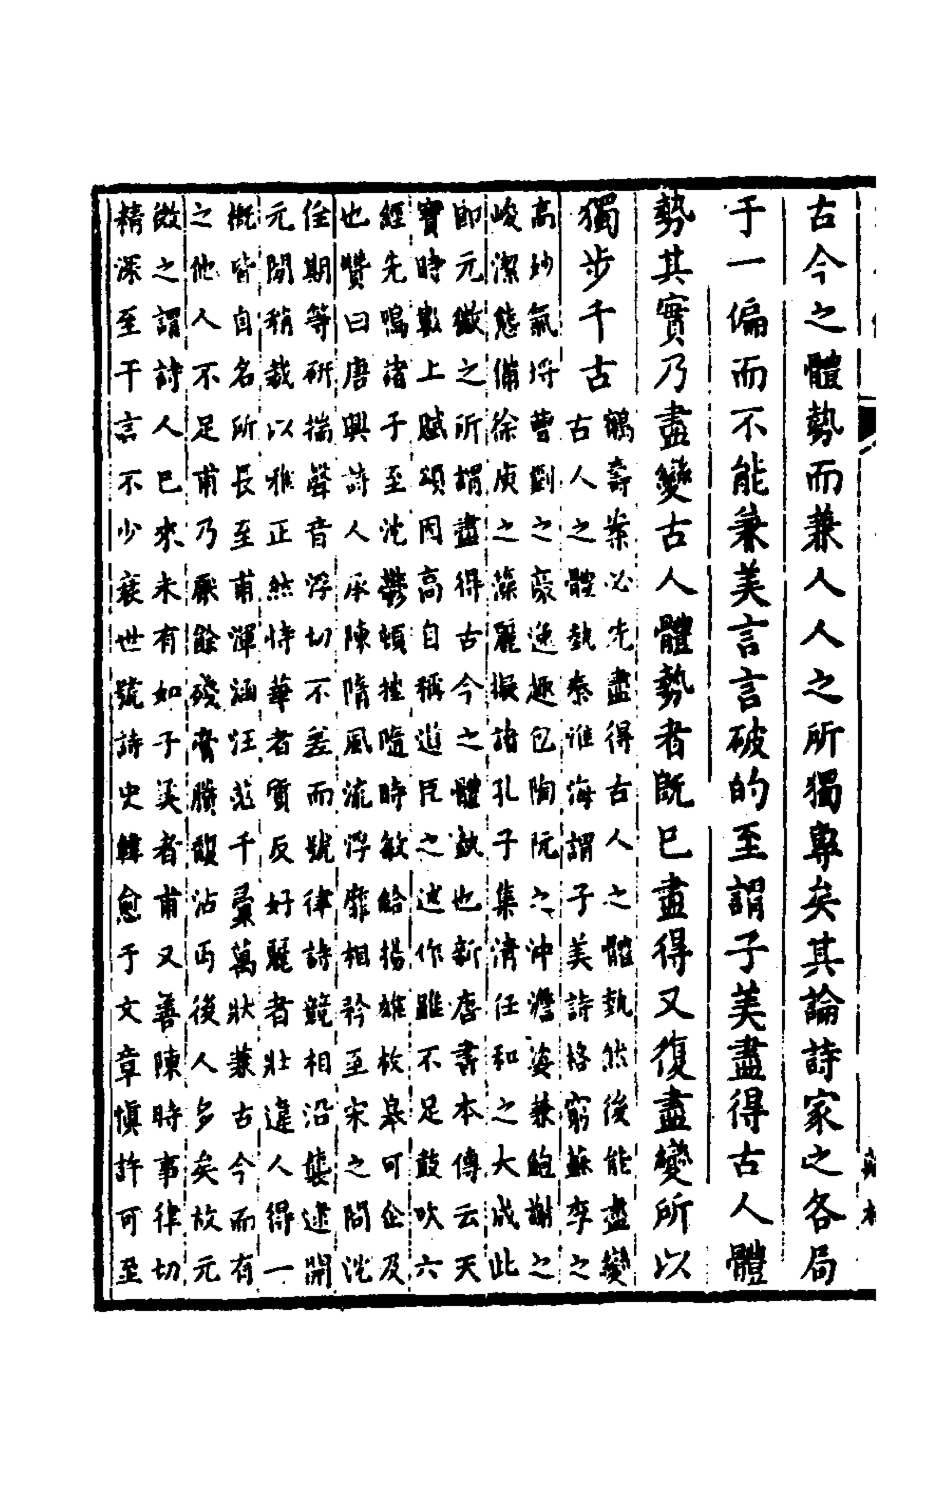 古今之體勢而兼人人之所獨專矣其論詩家之各局
于一偏而不能兼美言言破的至謂子美盡得古人體
勢其實乃盡變古人體勢者既已盡得又復盡變所以
獨步千古
鶴壽案必先盡得古人之體埶然後能盡變
古人之體埶秦淮海謂子美詩格窮蘇李之
高妙氣捋曹劉之豪逸趣包陶阮之沖澹姿兼鮑謝之
峻潔態備徐庾之藻麗擬諸孔子集清任和之大成此
即元微之所謂盡得古今之體埶也新唐書本傳云天
寶時數上賦頌因高自稱道臣之述作雖不足鼓吹六
經先鳴諸子至沈鬱頓挫隨時敏給揚雄枚皋可企及
也贊曰唐興詩人承陳隋風流浮靡相矜至宋之問沈
佺期等研揣聲音浮切不差而號律詩競相沿襲逮開
元間稍裁以雅正然恃華者質反好麗者壯違人得一
概皆自名所長至甫渾涵汪茫千彙萬狀兼古今而有
之他人不足甫乃厭餘殘膏賸馥沾丐後人多矣故元
微之謂詩人已來未有如子美者甫又善陳時事律切
精深至千言不少衰世號詩史韓愈于文章慎許可至